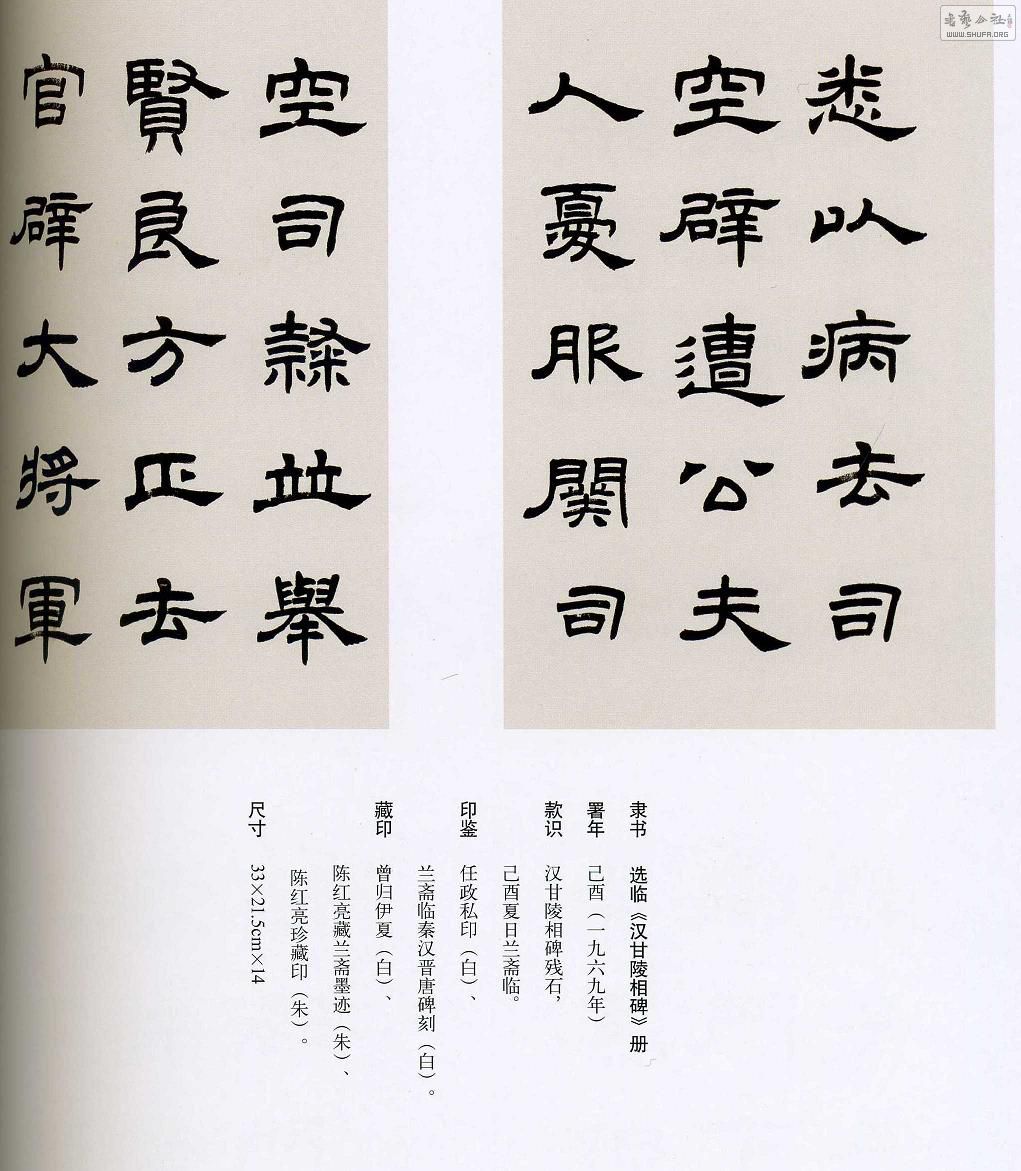 悉以病去司
空辟遭公夫
人憂服闋司
空司隸並舉
賢良方正去
官辟大將軍
隶书 选临《汉甘陵相碑》册
署年 己酉（一九六九年）
款识 汉甘陵相碑残石，
己酉夏日兰斋临。
印鉴 任政私印（白）、
兰斋临秦汉晋唐碑刻（白）。
藏印 曾归伊夏（白）、
陈红亮藏兰斋墨迹（朱）、
陈红亮珍藏印（朱）。
尺寸 33×21.5cm×14
書艺公社
WWW.SHUFA.ORG